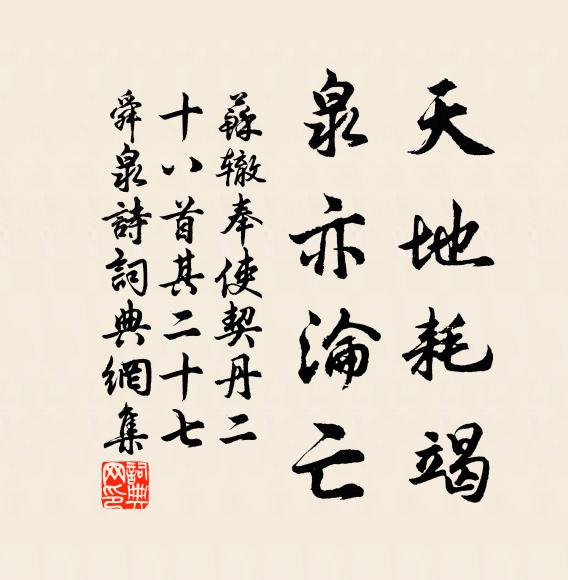 天地耗竭
泉亦淪亡
蘇轍奉使契丹二
十八首其二十七
舜泉詩詞典網集
詞典
网印